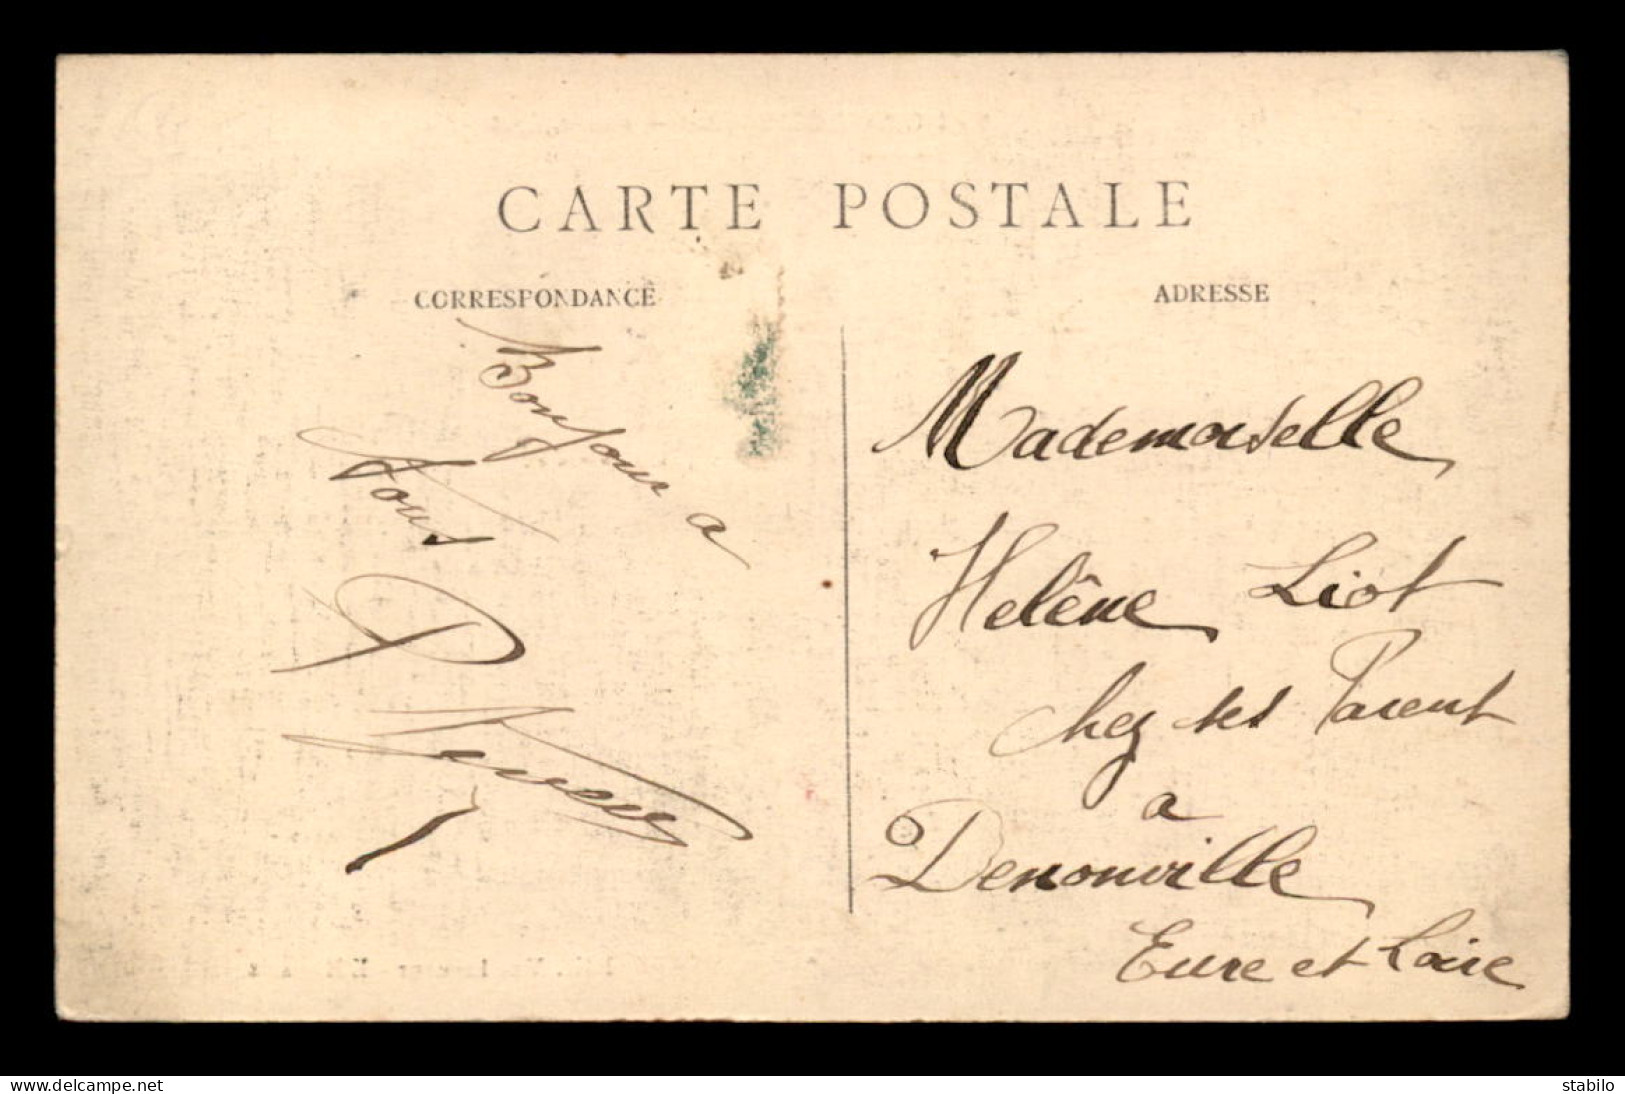 CARTE POSTALE
CORRESPONDANCE
ADRESSE
Bonjour a
tous
Mademoiselle
Helêne Liot
chez ses Parent
a
Denonville
Eure et Loire
www.delcampe.net
stabilo